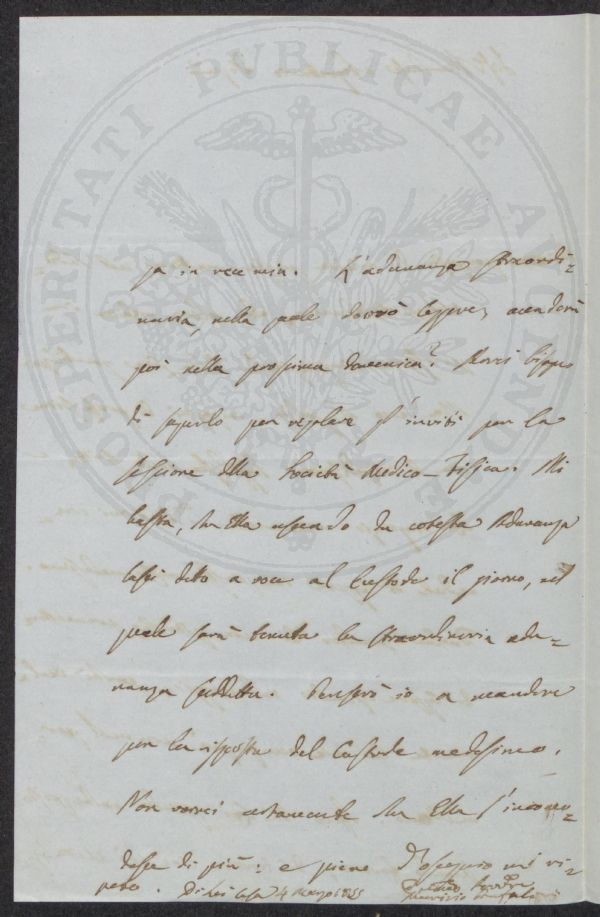 PROSPERITATI PUBLICAE AUGENDAE
za in vece mia. L'adunanza straordi=
naria, nella quale dovrò leggere, accaderà
poi nella prossima domenica? Avrei bisogno
di saperlo per regolare gl'inviti per la
sessione della Società Medico-Fisica. Mi
basta, che Ella uscendo da cotesta Adunanza
lasci detto a voce al Custode il giorno, nel
quale sarà tenuta la straordinaria adu=
nanza suddetta. Penserò io a mandare
per la risposta del Custode medesimo.
Non vorrei certamente che Ella s'incomo=
dasse di più: e pieno d'ossequio mi ri=
peto. Di Lei Casa 4 Marzo 1855